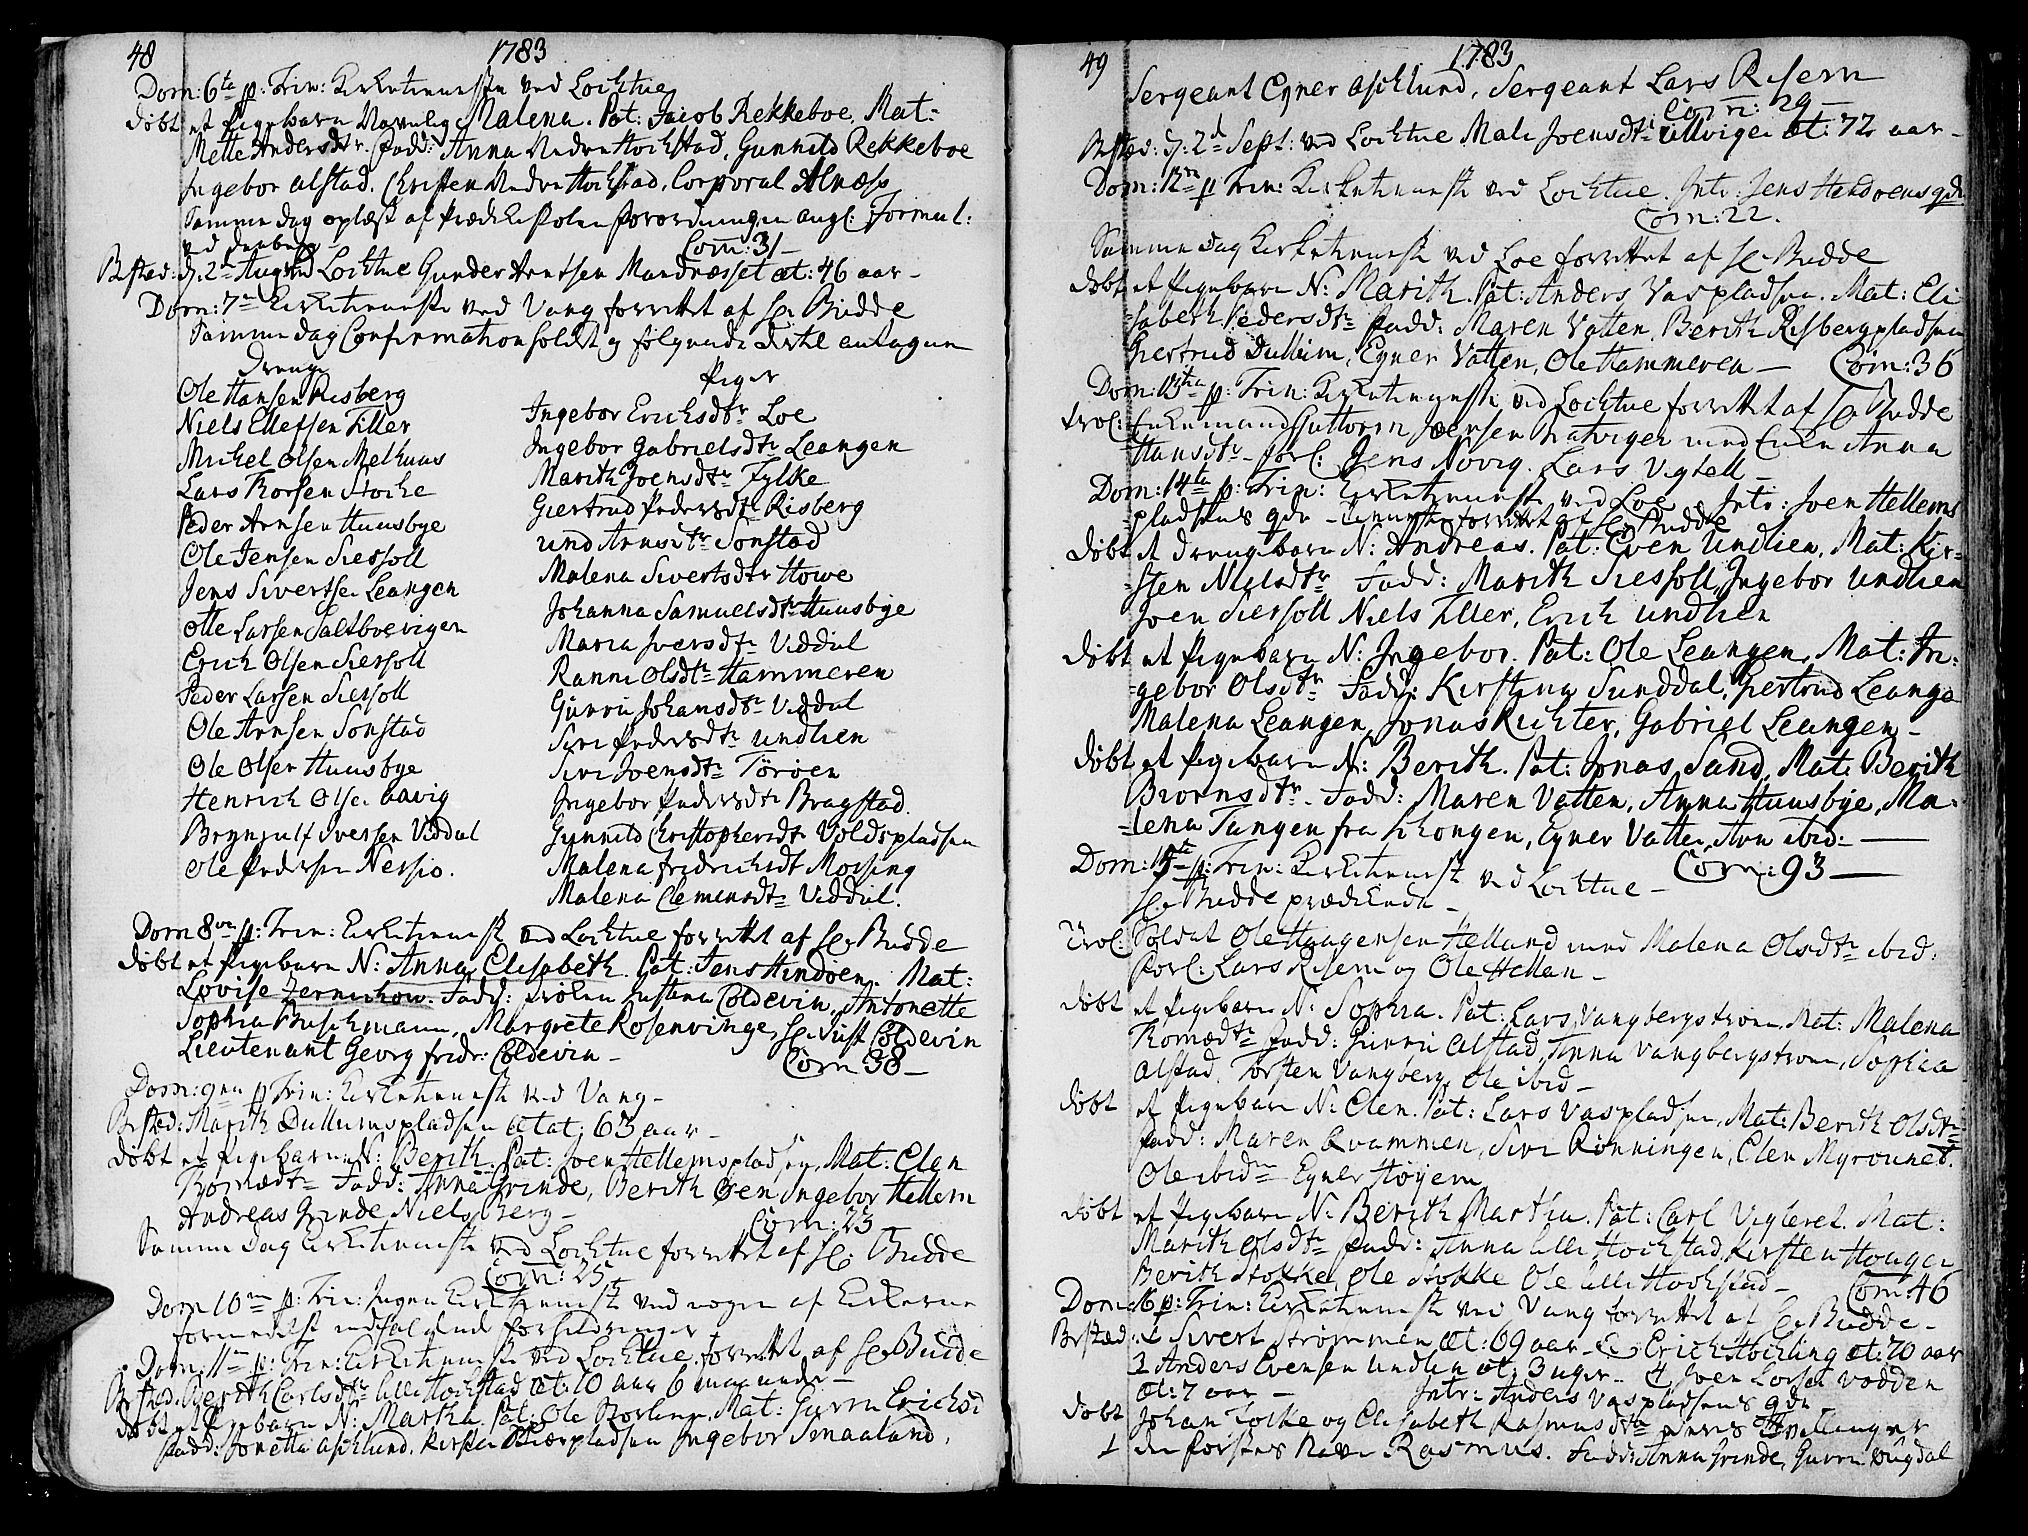 48
1783
Dom: 6te p: Trin: Kirketienniste ved Lochtue
døbt et Pigebarn Navnlig Malena. Pat: Jacob Rekkeboe, Mat:
Mette Andersdtr. Fadd: Anna Nedre Hochstad, Gunnild Rekkeboe
Ingebor Alstad. Christen Nedre Hochstad, Corporal Alnæss
Samme dag oplæst af Prædikestolen forordningen ang: Formul:
ved daaben
Com: 31 -
Bested: d: 2d August Lochtue Gunder Arntsen Mandræsset æt: 46 aar -
Dom: 7de Kirketienniste ved Vang forrettet af Hr Budde
Samme dag Confirmation holdt og følgende dertil antagen
Drenge
Ole Hansen Risberg
Niels Ellefsen Tiller
Mickel Olsen Melhuus
Lars Thorsen Stocke
Peder Arnsen Huusbye
Ole Jensen Siersoll
Jens Sivertsen Leangen
Otte Larsen Saltboevigen
Erich Olsen Siersoll
Peder Larsen Siersoll
Ole Arnsen Sonstad
Ole Olsen Huusbye
Henrich Olsen Aavig
Brynjulf Iversen Viddal
Ole Pedersen Nersio.
Piger
Ingebor Erichsdtr Loe
Ingebor Gabrielsdtr Leangen
Marith Joensdtr Fylke
Giertrud Pedersdtr Risberg
Und Arnsdtr Sonstad
Malena Sivertsdtr Howe
Johanna Samuelsdtr Huusbye
Maria Iversdtr Viddal
Ranni Olsdtr Hammeren
Gurru Johansdtr Viddal
Siri Pedersdtr Undlien
Siri Joensdtr Tørøen
Ingebor Pedersdtr Bragstad
Gunnild Christophersdtr Voldspladsen
Malena Fridrichsdt Morsing
Malena Clemensdtr Viddal.
Dom 8ve p: Trin: Kirketienniste ved Lochtue forrettet af Hr Budde
døbt et Pigebarn N: Anna Elisabeth. Pat: Jens Hindoen. Mat:
Lovise Zernichow. Fadd: Frøken Justina Coldevin, Antonette
Sophia Buschmann, Margrete Rosenvinge, Hr Just Coldevin
Lieutenant Georg Fridr: Coldevin -
Com 38 -
Dom: 9nn p Trin: Kirketienniste ved Vang -
Bested: Marith Dullumspladsen ætat: 63 aar -
døbt et Pigebarn N: Berith. Pat: Joen Hellemspladsen, Mat: Elen
Thomædtr Fadd: Anna Grinde, Berith Øien Ingebor Hellem
Andreas Grinde Niels Berg -
Com: 23
Samme Dag Kirketienniste ved Lochtue forrettet af Hr: Budde
Com: 25
Dom 10de p: Trin: Ingen Kirketienniste ved nogen af Kirkerne
formedelst indfaldende forhindringer
Dom: 11te p: Trin: Kirketienniste ved Lochtue. forrettet af Hr Budde
Bested: Berith Carlsdtr lille Hochstad æt: 10 aar 6 maaneder -
døbt et Pigebarn N: Martha. Pat: Ole Storlien, Mat: Gurru Erichsd
Fadd: Jonetta Aschlund. Kirsten Ingebor Smaaland,
49
1783
Sergeant Eyner Aschlund, Sergeant Lars Risem
Com: 29 -
Bested: d: 2d Sept: ved Lochtue Mali Joensdtr Ulvigen æt: 72 aar -
Dom: 12te p Trin: Kirketienniste ved Lochtue. Intr: Jens Hindoens qde
Com: 22.
Samme dag Kirketienniste ved Loe forrettet af Hr Budde
døbt et Pigebarn N: Marith. Pat: Anders Vaspladsen. Mat: Eli
=sabeth Pedersdtr Fadd: Maren Vatten. Berith Risbergpladsen
Giertrud Dullum, Eyner Vatten, Ole Hammeren - Com: 36
Dom: 13tn p: Trin: Kirketienniste ved Lochtue forrettet af Hr Budde
Trol: Enkemand Guttorm Joensen med Enken Anna
Hansdtr. Forl: Jens Novig. Lars Vigtell -
Dom: 14te p: Trin: Kirketienniste ved Loe Intr: Joen Hellems
=pladsens qde - tienniste forrettet af Hr Budde
døbt et Drengebarn N: Andreas. Pat: Even Undlien, Mat: Kir=
=sten Nielsdtr Fadd: Marith Siersoll, Ingebor Undlien
Joen Siersoll Niels Tiller, Erich Undlien
døbt et Pigebarn N: Ingebor. Pat: Ole Leangen, Mat: In:
=gebor Olsdtr Fadd: Kirstina Sunddal, Giertrud Leange
Malena Leangen, Jonas Richter, Gabriel Leangen -
døbt et Pigebarn N: Berith. Pat: Jonas Sand, Mat: Berith
Biørnsdtr - Fadd: Maren Vatten, Anna Huusbye, Ma=
=lena Tangen fra Ekongen, Eyner Vatten, Arn ibid: -
Dom: 15te p: Trin: Kirketienniste ved Lochtue - Com: 93 -
Hr Budde prædikende -
Trol: Soldat Ole Haagensen Helland med Malena Olsdtr ibid:
Forl: Lars Risem og Ole Hellan -
døbt et Pigebarn N: Sophia. Pat: Lars Vangbergstrøen, Mat: Malena
Thomædtr Fadd: Gurru Alstad, Anna Vangbergstrøen, Sophia
Alstad, Torsten Vangberg, Ole ibid -
døbt et Pigebarn N: Elen. Pat: Lars Vaspladsen, Mat: Berith Olsdtr
Fadd: Maren Qvammen, Siri Rønningen, Elen Myrouned.
Ole ibidm Eyner Høyem
døbt et Pigebarn N: Berith Martha. Pat: Carl Vigteret. Mat:
Marith Olsdtr Fadd: Anna lille Hochstad, Kirsten Hougen
Berith Stokke, Ole Stokke Ole lille Hochstad - Com: 46
Dom: 16 p: Trin: Kirketienniste ved Vang forrettet af Hr Budde -
Bested: 1 Sivert Strømmen æt: 69 aar - 2 Erich Høchling æt: 70 aar
3 Anders Evensen Undlien æt: 3 uger - 4 Joen Larsen Vodden
æt: 7 aar - Intr: Anders Vaspladsens qde
døbt Johan Folke og Elisabeth Rasmusdtr deres Tvillinger
1 den førstes Navn Rasmus. Fadd: Anna Grinde, Gurru Bugdal